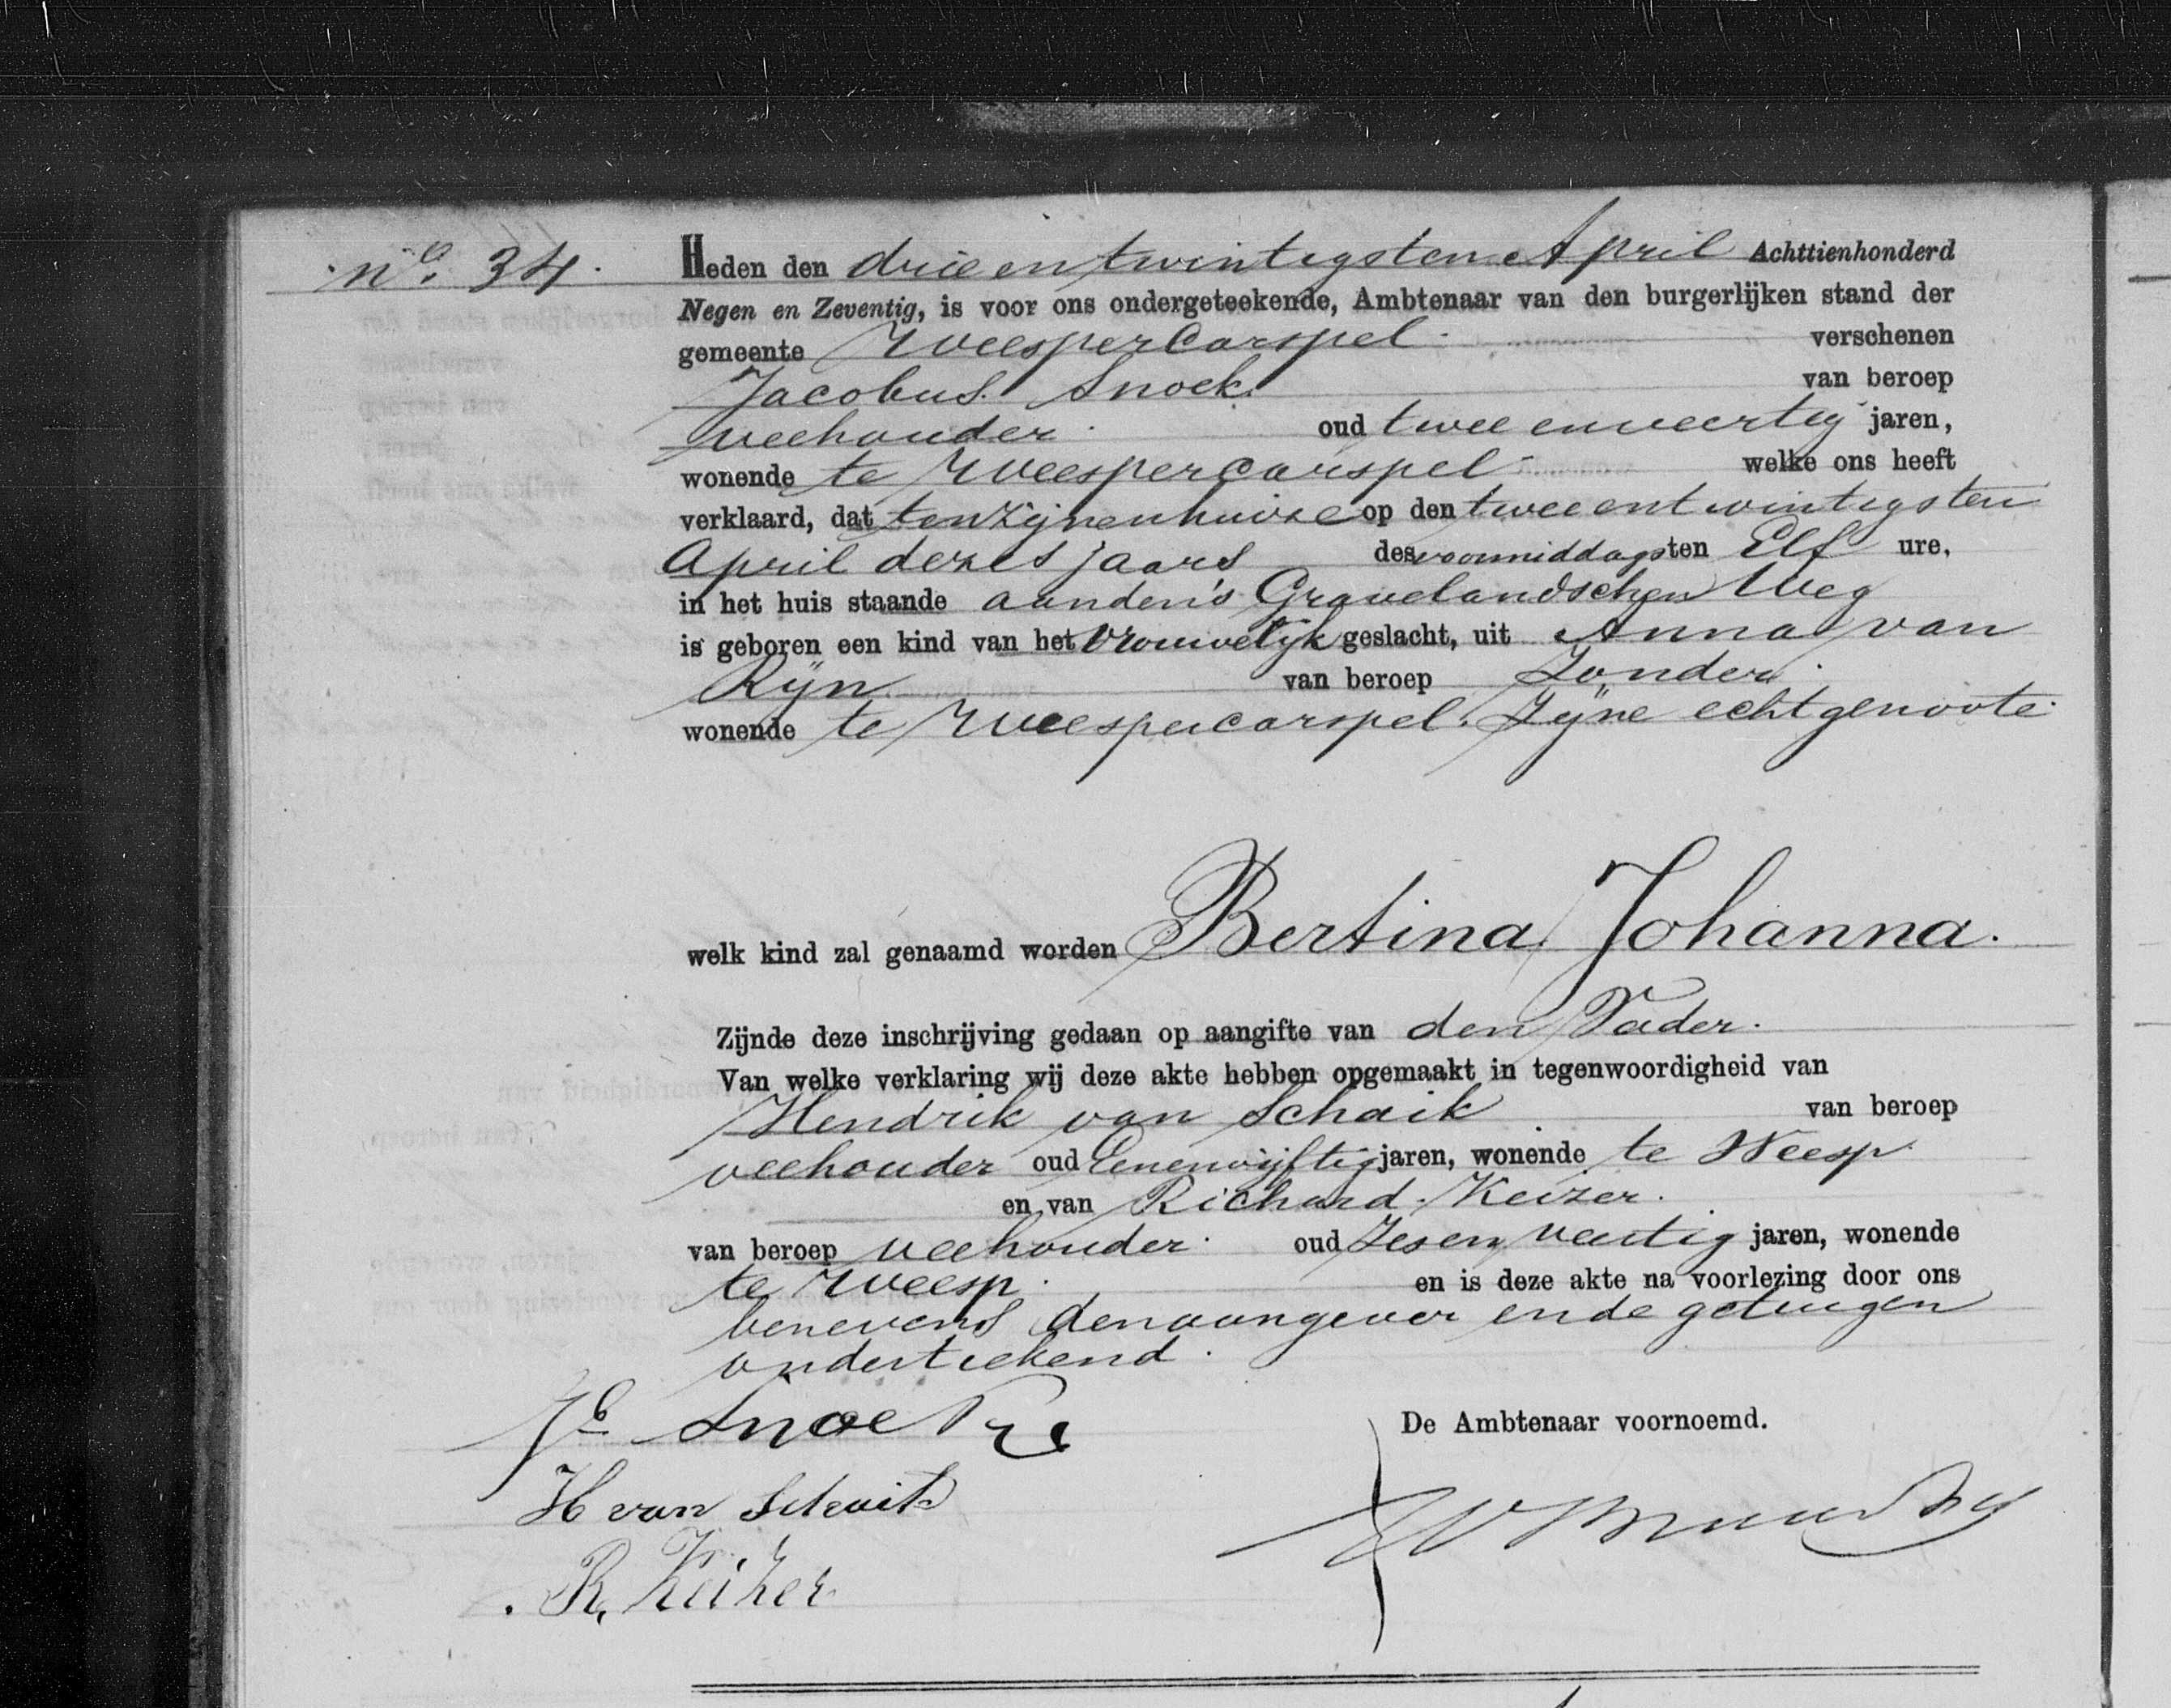 No. 34.
Heden den drie en twintigsten April Achttienhonderd
Negen en Zeventig, is voor ons ondergeteekende, Ambtenaar van den burgerlijken stand der
gemeente Weespercarspel verschenen
Jacobus Snoek van beroep
veehouder oud twee en veertig jaren,
wonende te Weespercarspel welke ons heeft
verklaard, dat ten zijnen huize op den twee en twintigsten
April dezes jaars des voormiddags ten Elf ure,
in het huis staande aan den 's Gravelandschen Weg
is geboren een kind van het vrouwelijk geslacht, uit Anna van
Rijn van beroep Zonder
wonende te Weespercarspel. Zijne echtgenoote
welk kind zal genaamd worden Bertina Johanna.
Zijnde deze inschrijving gedaan op aangifte van den Vader.
Van welke verklaring wij deze akte hebben opgemaakt in tegenwoordigheid van
Hendrik van Schaik van beroep
veehouder oud Eenenvijftig jaren, wonende te Weesp
en van Richard Keizer.
van beroep veehouder oud Zes en veertig jaren, wonende
te Weesp. en is deze akte na voorlezing door ons
benevens den aangever en de getuigen
onderteekend.
Js Snoek
De Ambtenaar voornoemd.
H van Schaik
R. Keizer